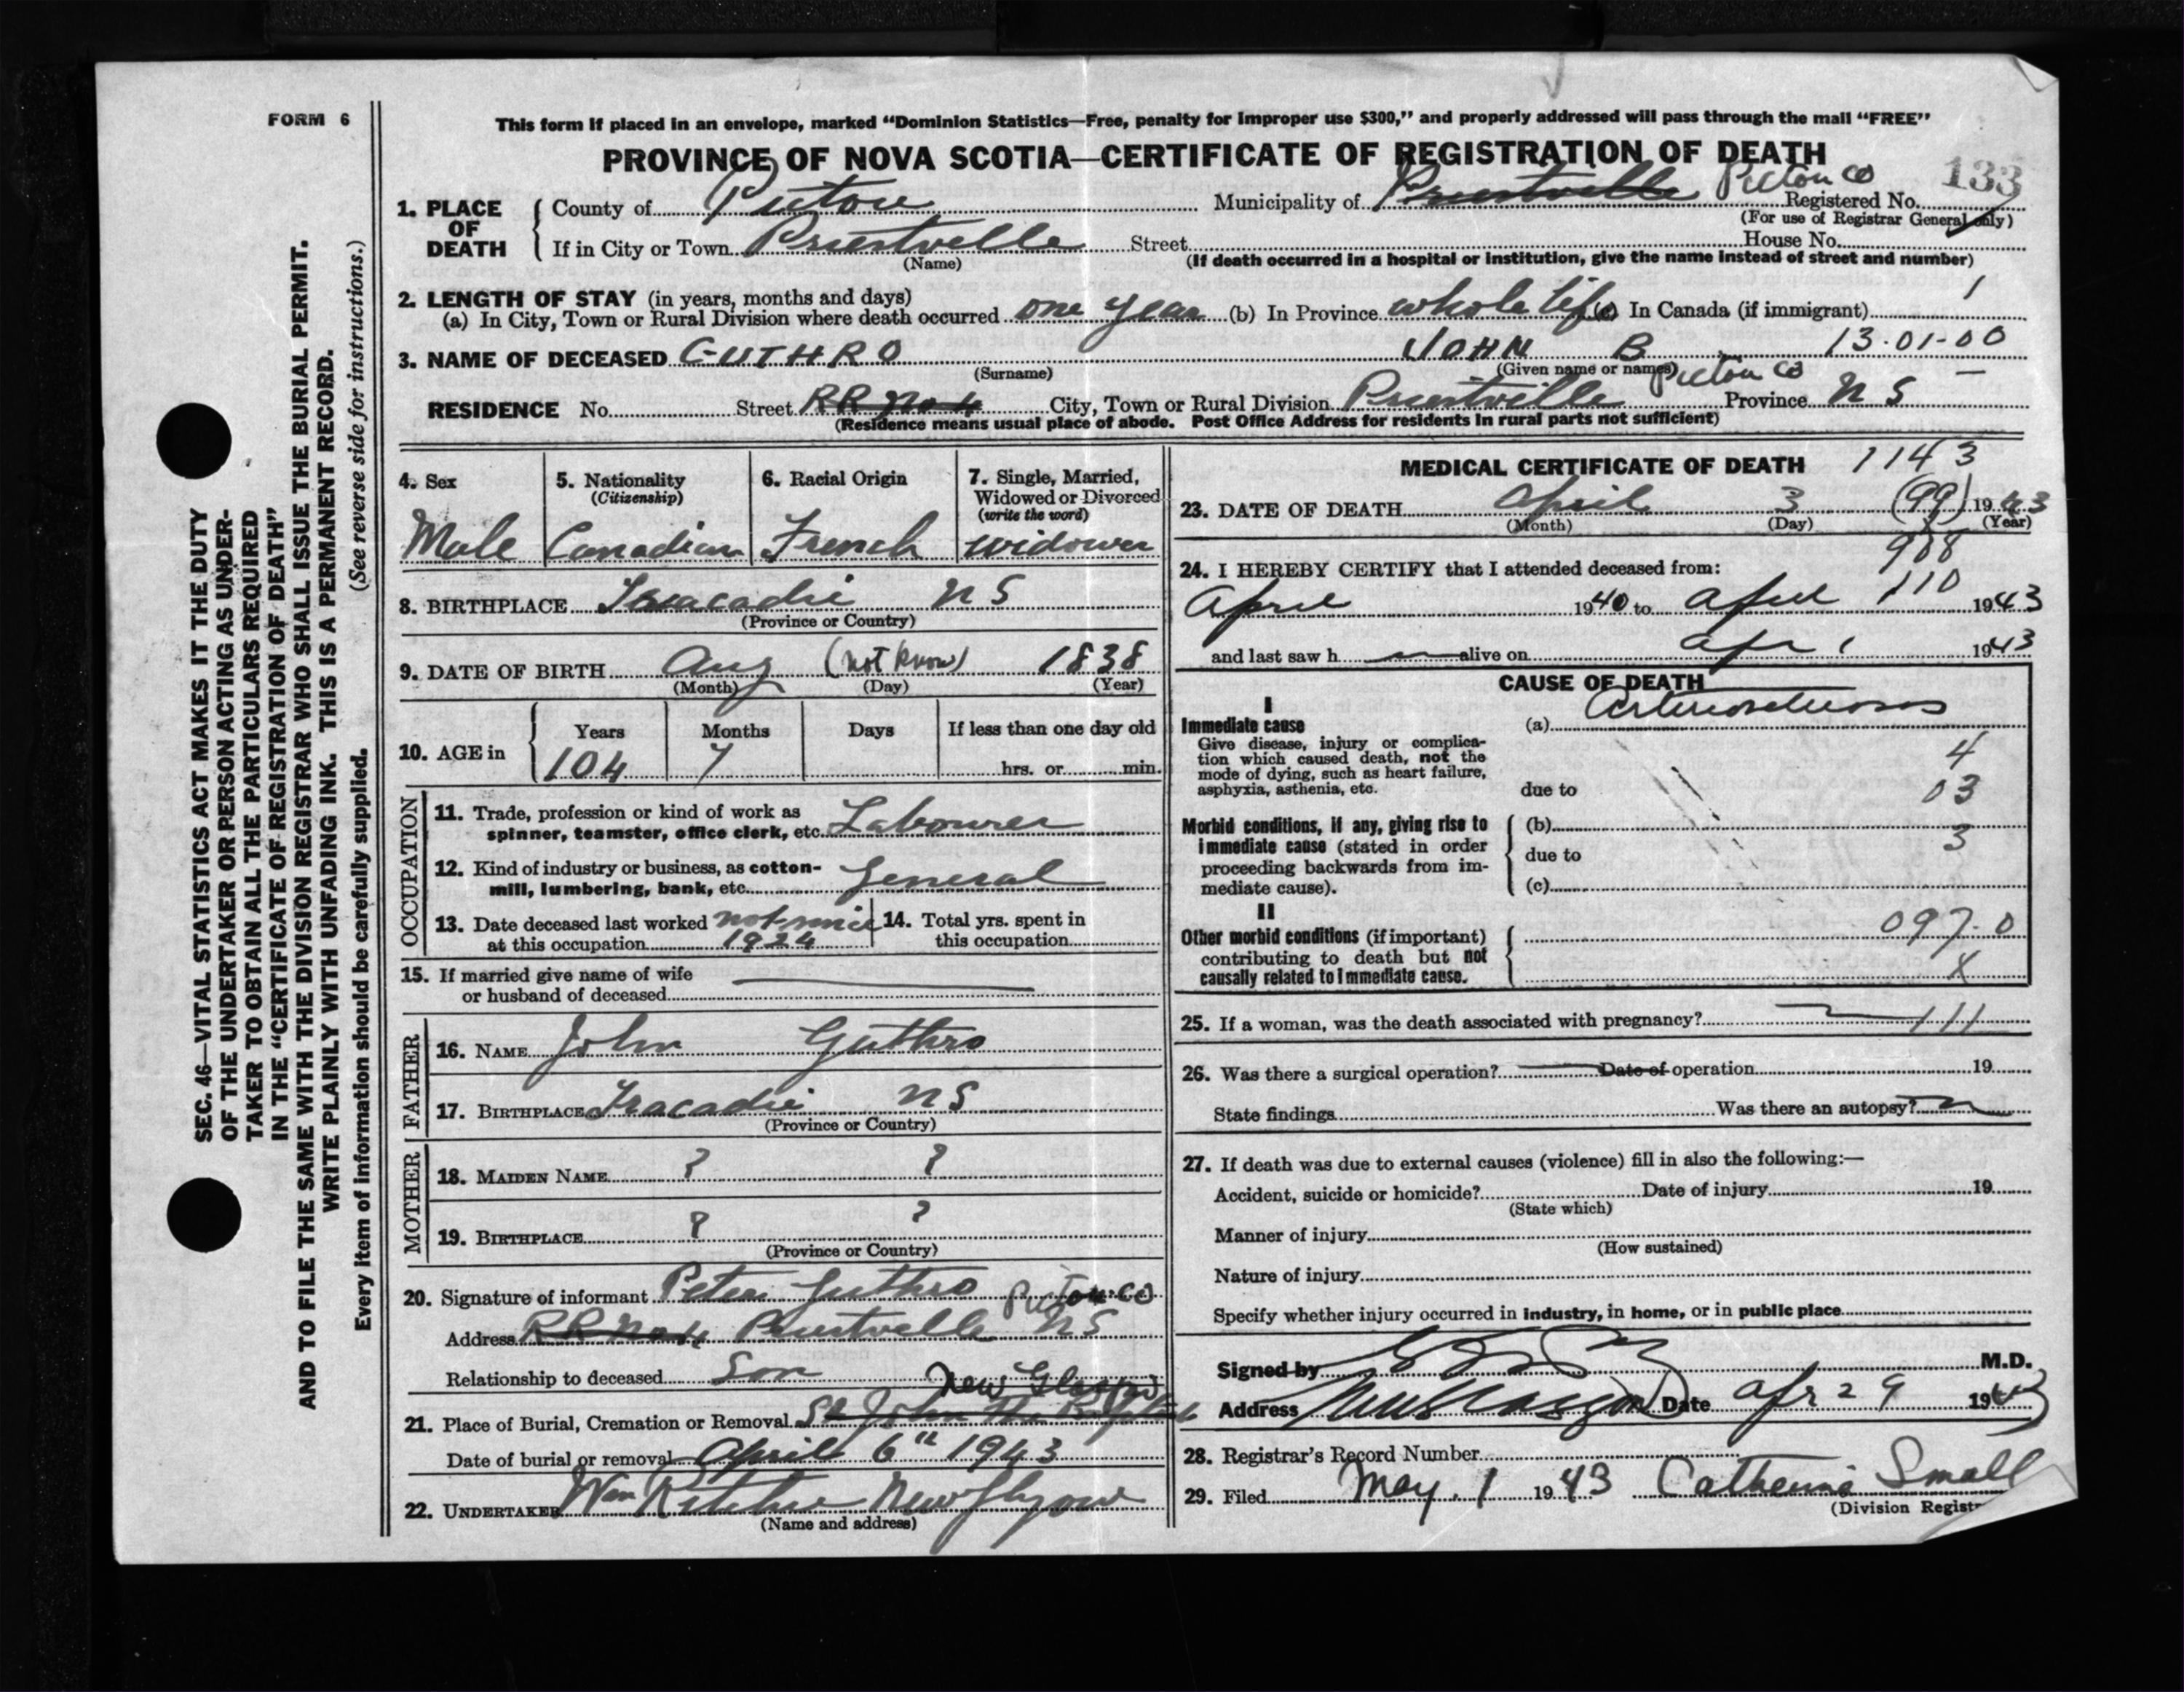 FORM 6
This form if placed in an envelope, marked “Dominion Statistics—Free, penalty for improper use $300,” and properly addressed will pass through the mail “FREE”
PROVINCE OF NOVA SCOTIA—CERTIFICATE OF REGISTRATION OF DEATH
133
1. PLACE OF DEATH
County of Pictou Municipality of Priestville Pictou Co Registered No.
(For use of Registrar General only)
If in City or Town Priestville Street House No.
(Name) (If death occurred in a hospital or institution, give the name instead of street and number)
2. LENGTH OF STAY (in years, months and days)
(a) In City, Town or Rural Division where death occurred one year (b) In Province whole life (c) In Canada (if immigrant) 1
3. NAME OF DECEASED GUTHRO JOHN B 13-01-00
(Surname) (Given name or names)
RESIDENCE No. Street RR No 4 City, Town or Rural Division Priestville Pictou Co Province N S
(Residence means usual place of abode. Post Office Address for residents in rural parts not sufficient)
4. Sex
Male
5. Nationality
(Citizenship)
Canadian
6. Racial Origin
French
7. Single, Married,
Widowed or Divorced
(write the word)
widower
8. BIRTHPLACE Tracadie N S
(Province or Country)
9. DATE OF BIRTH Aug (not know) 1838
(Month) (Day) (Year)
10. AGE in
Years Months Days If less than one day old
104 7 hrs. or min.
OCCUPATION
11. Trade, profession or kind of work as
spinner, teamster, office clerk, etc. Labourer
12. Kind of industry or business, as cotton-
mill, lumbering, bank, etc. General
13. Date deceased last worked not since
at this occupation 1924
14. Total yrs. spent in
this occupation
15. If married give name of wife
or husband of deceased
FATHER
16. NAME John Guthro
17. BIRTHPLACE Tracadie N S
(Province or Country)
MOTHER
18. MAIDEN NAME ? ?
19. BIRTHPLACE ? ?
(Province or Country)
20. Signature of informant Peter Guthro
Address RR No 4 Priestville Pictou Co N S
Relationship to deceased Son
21. Place of Burial, Cremation or Removal St John the Baptist New Glasgow
Date of burial or removal April 6th 1943
22. UNDERTAKER Wm Ritchie New Glasgow
(Name and address)
MEDICAL CERTIFICATE OF DEATH 1143
23. DATE OF DEATH April 3 (99) 1943
(Month) (Day) (Year)
908
24. I HEREBY CERTIFY that I attended deceased from:
110
April 1940 to April 1943
and last saw h alive on Apr 1 1943
CAUSE OF DEATH
I
Immediate cause
Give disease, injury or complica-
tion which caused death, not the
mode of dying, such as heart failure,
asphyxia, asthenia, etc.
(a) Arteriosclerosis
4
due to 03
Morbid conditions, if any, giving rise to
immediate cause (stated in order
proceeding backwards from im-
mediate cause).
(b)
3
due to
(c)
II
Other morbid conditions (if important)
contributing to death but not
causally related to immediate cause.
097.0
X
25. If a woman, was the death associated with pregnancy? 111
26. Was there a surgical operation? Date of operation 19
State findings Was there an autopsy?
27. If death was due to external causes (violence) fill in also the following:—
Accident, suicide or homicide? Date of injury 19
(State which)
Manner of injury
(How sustained)
Nature of injury
Specify whether injury occurred in industry, in home, or in public place
Signed by M.D.
Address New Glasgow Date Apr 29 1943
28. Registrar's Record Number
29. Filed May. 1 1943 Catherine Small
(Division Regist
SEC. 46—VITAL STATISTICS ACT MAKES IT THE DUTY
OF THE UNDERTAKER OR PERSON ACTING AS UNDER-
TAKER TO OBTAIN ALL THE PARTICULARS REQUIRED
IN THE “CERTIFICATE OF REGISTRATION OF DEATH”
AND TO FILE THE SAME WITH THE DIVISION REGISTRAR WHO SHALL ISSUE THE BURIAL PERMIT.
WRITE PLAINLY WITH UNFADING INK. THIS IS A PERMANENT RECORD.
Every item of information should be carefully supplied. (See reverse side for instructions.)